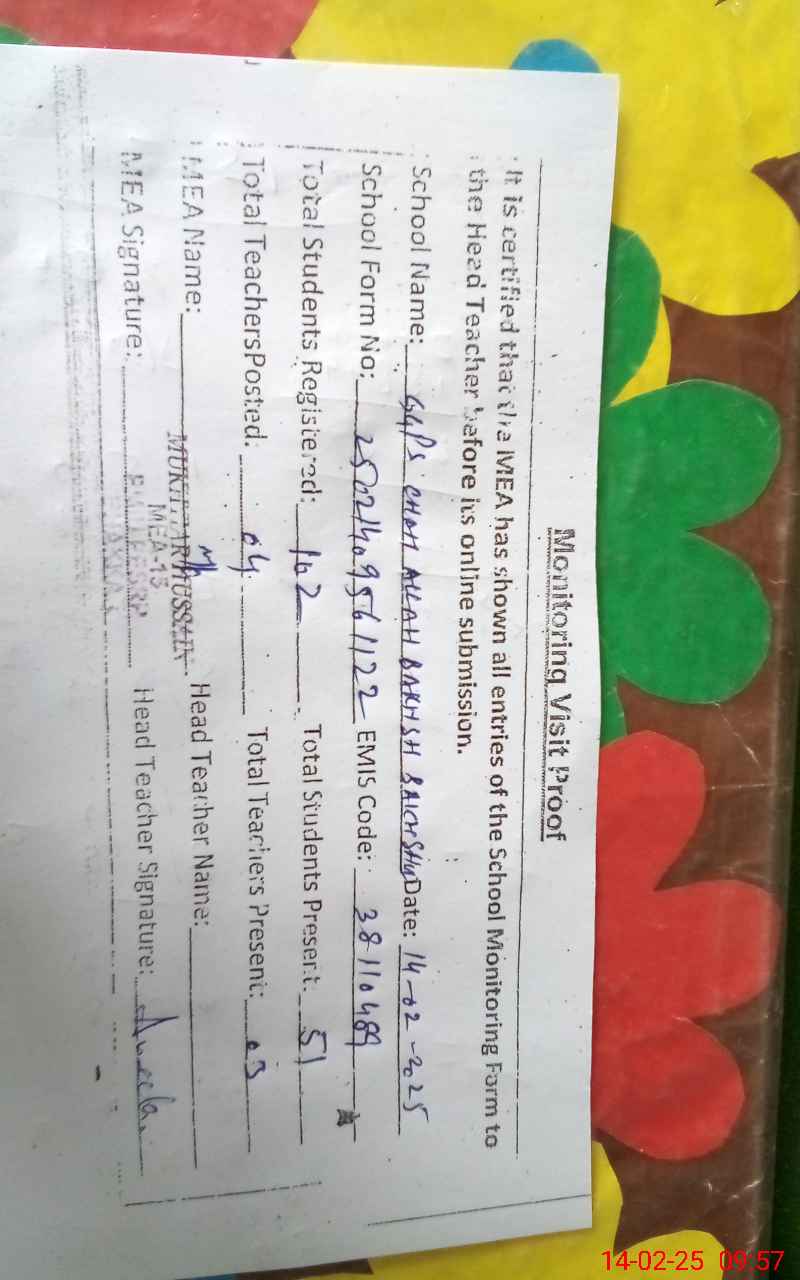 Monitoring Visit Proof
It is certified that the MEA has shown all entries of the School Monitoring Form to
the Head Teacher before its online submission.
School Name: GGPS CHAH ALLAH BAKHSH Date: 14-02-2025
School Form No: 25021409561122 EMIS Code: 38110489
Total Students Registered: 102 Total Students Present: 51
Total TeachersPosted: 04 Total Teachers Present: 03
MEA Name: MUKHTAR HUSSAIN Head Teacher Name:
MEA-13
MEA Signature: Head Teacher Signature:
14-02-25 09:57